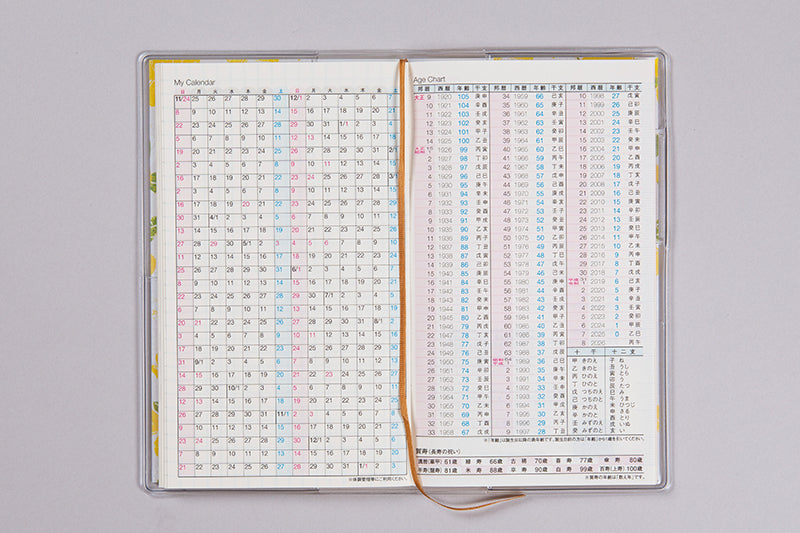 My Calendar
日 月 火 水 木 金 土 日 月 火 水 木 金 土
11/24 25 26 27 28 29 30 12/1 2 3 4 5 6 7
8 9 10 11 12 13 14 15 16 17 18 19 20 21
22 23 24 25 26 27 28 29 30 31 1/1 2 3 4
5 6 7 8 9 10 11 12 13 14 15 16 17 18
19 20 21 22 23 24 25 26 27 28 29 30 31 2/1
2 3 4 5 6 7 8 9 10 11 12 13 14 15
16 17 18 19 20 21 22 23 24 25 26 27 28 3/1
2 3 4 5 6 7 8 9 10 11 12 13 14 15
16 17 18 19 20 21 22 23 24 25 26 27 28 29
30 31 4/1 2 3 4 5 6 7 8 9 10 11 12
13 14 15 16 17 18 19 20 21 22 23 24 25 26
27 28 29 30 5/1 2 3 4 5 6 7 8 9 10
11 12 13 14 15 16 17 18 19 20 21 22 23 24
25 26 27 28 29 30 31 6/1 2 3 4 5 6 7
8 9 10 11 12 13 14 15 16 17 18 19 20 21
22 23 24 25 26 27 28 29 30 7/1 2 3 4 5
6 7 8 9 10 11 12 13 14 15 16 17 18 19
20 21 22 23 24 25 26 27 28 29 30 31 8/1 2
3 4 5 6 7 8 9 10 11 12 13 14 15 16
17 18 19 20 21 22 23 24 25 26 27 28 29 30
31 9/1 2 3 4 5 6 7 8 9 10 11 12 13
14 15 16 17 18 19 20 21 22 23 24 25 26 27
28 29 30 10/1 2 3 4 5 6 7 8 9 10 11
12 13 14 15 16 17 18 19 20 21 22 23 24 25
26 27 28 29 30 31 11/1 2 3 4 5 6 7 8
9 10 11 12 13 14 15 16 17 18 19 20 21 22
23 24 25 26 27 28 29 30 12/1 2 3 4 5 6
7 8 9 10 11 12 13 14 15 16 17 18 19 20
21 22 23 24 25 26 27 28 29 30 31 1/1 2 3
※体調管理等にご利用ください。
Age Chart
邦暦 西暦 年齢 干支 邦暦 西暦 年齢 干支 邦暦 西暦 年齢 干支
大正 9 1920 105 庚申 34 1959 66 己亥 10 1998 27 戊寅
10 1921 104 辛酉 35 1960 65 庚子 11 1999 26 己卯
11 1922 103 壬戌 36 1961 64 辛丑 12 2000 25 庚辰
12 1923 102 癸亥 37 1962 63 壬寅 13 2001 24 辛巳
13 1924 101 甲子 38 1963 62 癸卯 14 2002 23 壬午
14 1925 100 乙丑 39 1964 61 甲辰 15 2003 22 癸未
大正15 昭和 1 1926 99 丙寅 40 1965 60 乙巳 16 2004 21 甲申
2 1927 98 丁卯 41 1966 59 丙午 17 2005 20 乙酉
3 1928 97 戊辰 42 1967 58 丁未 18 2006 19 丙戌
4 1929 96 己巳 43 1968 57 戊申 19 2007 18 丁亥
5 1930 95 庚午 44 1969 56 己酉 20 2008 17 戊子
6 1931 94 辛未 45 1970 55 庚戌 21 2009 16 己丑
7 1932 93 壬申 46 1971 54 辛亥 22 2010 15 庚寅
8 1933 92 癸酉 47 1972 53 壬子 23 2011 14 辛卯
9 1934 91 甲戌 48 1973 52 癸丑 24 2012 13 壬辰
10 1935 90 乙亥 49 1974 51 甲寅 25 2013 12 癸巳
11 1936 89 丙子 50 1975 50 乙卯 26 2014 11 甲午
12 1937 88 丁丑 51 1976 49 丙辰 27 2015 10 乙未
13 1938 87 戊寅 52 1977 48 丁巳 28 2016 9 丙申
14 1939 86 己卯 53 1978 47 戊午 29 2017 8 丁酉
15 1940 85 庚辰 54 1979 46 己未 30 2018 7 戊戌
16 1941 84 辛巳 55 1980 45 庚申 平成31 令和 1 2019 6 己亥
17 1942 83 壬午 56 1981 44 辛酉 2 2020 5 庚子
18 1943 82 癸未 57 1982 43 壬戌 3 2021 4 辛丑
19 1944 81 甲申 58 1983 42 癸亥 4 2022 3 壬寅
20 1945 80 乙酉 59 1984 41 甲子 5 2023 2 癸卯
21 1946 79 丙戌 60 1985 40 乙丑 6 2024 1 甲辰
22 1947 78 丁亥 61 1986 39 丙寅 7 2025 0 乙巳
23 1948 77 戊子 62 1987 38 丁卯 8 2026 丙午
24 1949 76 己丑 63 1988 37 戊辰 十干 十二支
25 1950 75 庚寅 昭和64 平成 1 1989 36 己巳 甲 きのえ 子 ね
26 1951 74 辛卯 2 1990 35 庚午 乙 きのと 丑 うし
27 1952 73 壬辰 3 1991 34 辛未 丙 ひのえ 寅 とら
28 1953 72 癸巳 4 1992 33 壬申 丁 ひのと 卯 う
29 1954 71 甲午 5 1993 32 癸酉 戊 つちのえ 辰 たつ
30 1955 70 乙未 6 1994 31 甲戌 己 つちのと 巳 み
31 1956 69 丙申 7 1995 30 乙亥 庚 かのえ 午 うま
32 1957 68 丁酉 8 1996 29 丙子 辛 かのと 未 ひつじ
33 1958 67 戊戌 9 1997 28 丁丑 壬 みずのえ 申 さる
癸 みずのと 酉 とり
戌 いぬ
亥 い
※「年齢」は誕生日以降の満年齢です。誕生日前の方は「年齢」から1歳を引いてください。
賀寿(長寿の祝い)
還暦(華甲) 61歳 緑寿 66歳 古稀 70歳 喜寿 77歳 傘寿 80歳
半寿(盤寿) 81歳 米寿 88歳 卒寿 90歳 白寿 99歳 百寿(上寿) 100歳
※賀寿の年齢は「数え年」です。